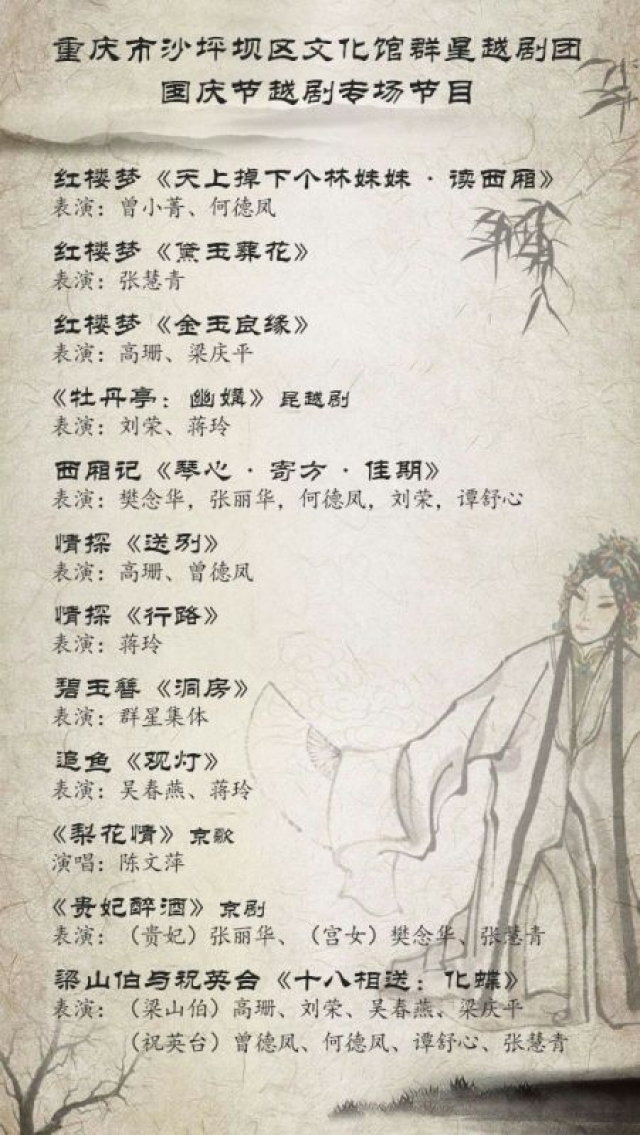 重庆市沙坪坝区文化馆群星越剧团
国庆节越剧专场节目
红楼梦《天上掉下个林妹妹·读西厢》
表演：曾小菁、何德凤
红楼梦《黛玉葬花》
表演：张慧青
红楼梦《金玉良缘》
表演：高珊、梁庆平
《牡丹亭：幽媾》昆越剧
表演：刘荣、蒋玲
西厢记《琴心·寄方·佳期》
表演：樊念华，张丽华，何德凤，刘荣，谭舒心
情探《送别》
表演：高珊、曾德凤
情探《行路》
表演：蒋玲
碧玉簪《洞房》
表演：群星集体
追鱼《观灯》
表演：吴春燕、蒋玲
《梨花情》京歌
演唱：陈文萍
《贵妃醉酒》京剧
表演：（贵妃）张丽华、（宫女）樊念华、张慧青
梁山伯与祝英台《十八相送：化蝶》
表演：（梁山伯）高珊、刘荣、吴春燕、梁庆平
（祝英台）曾德凤、何德凤、谭舒心、张慧青